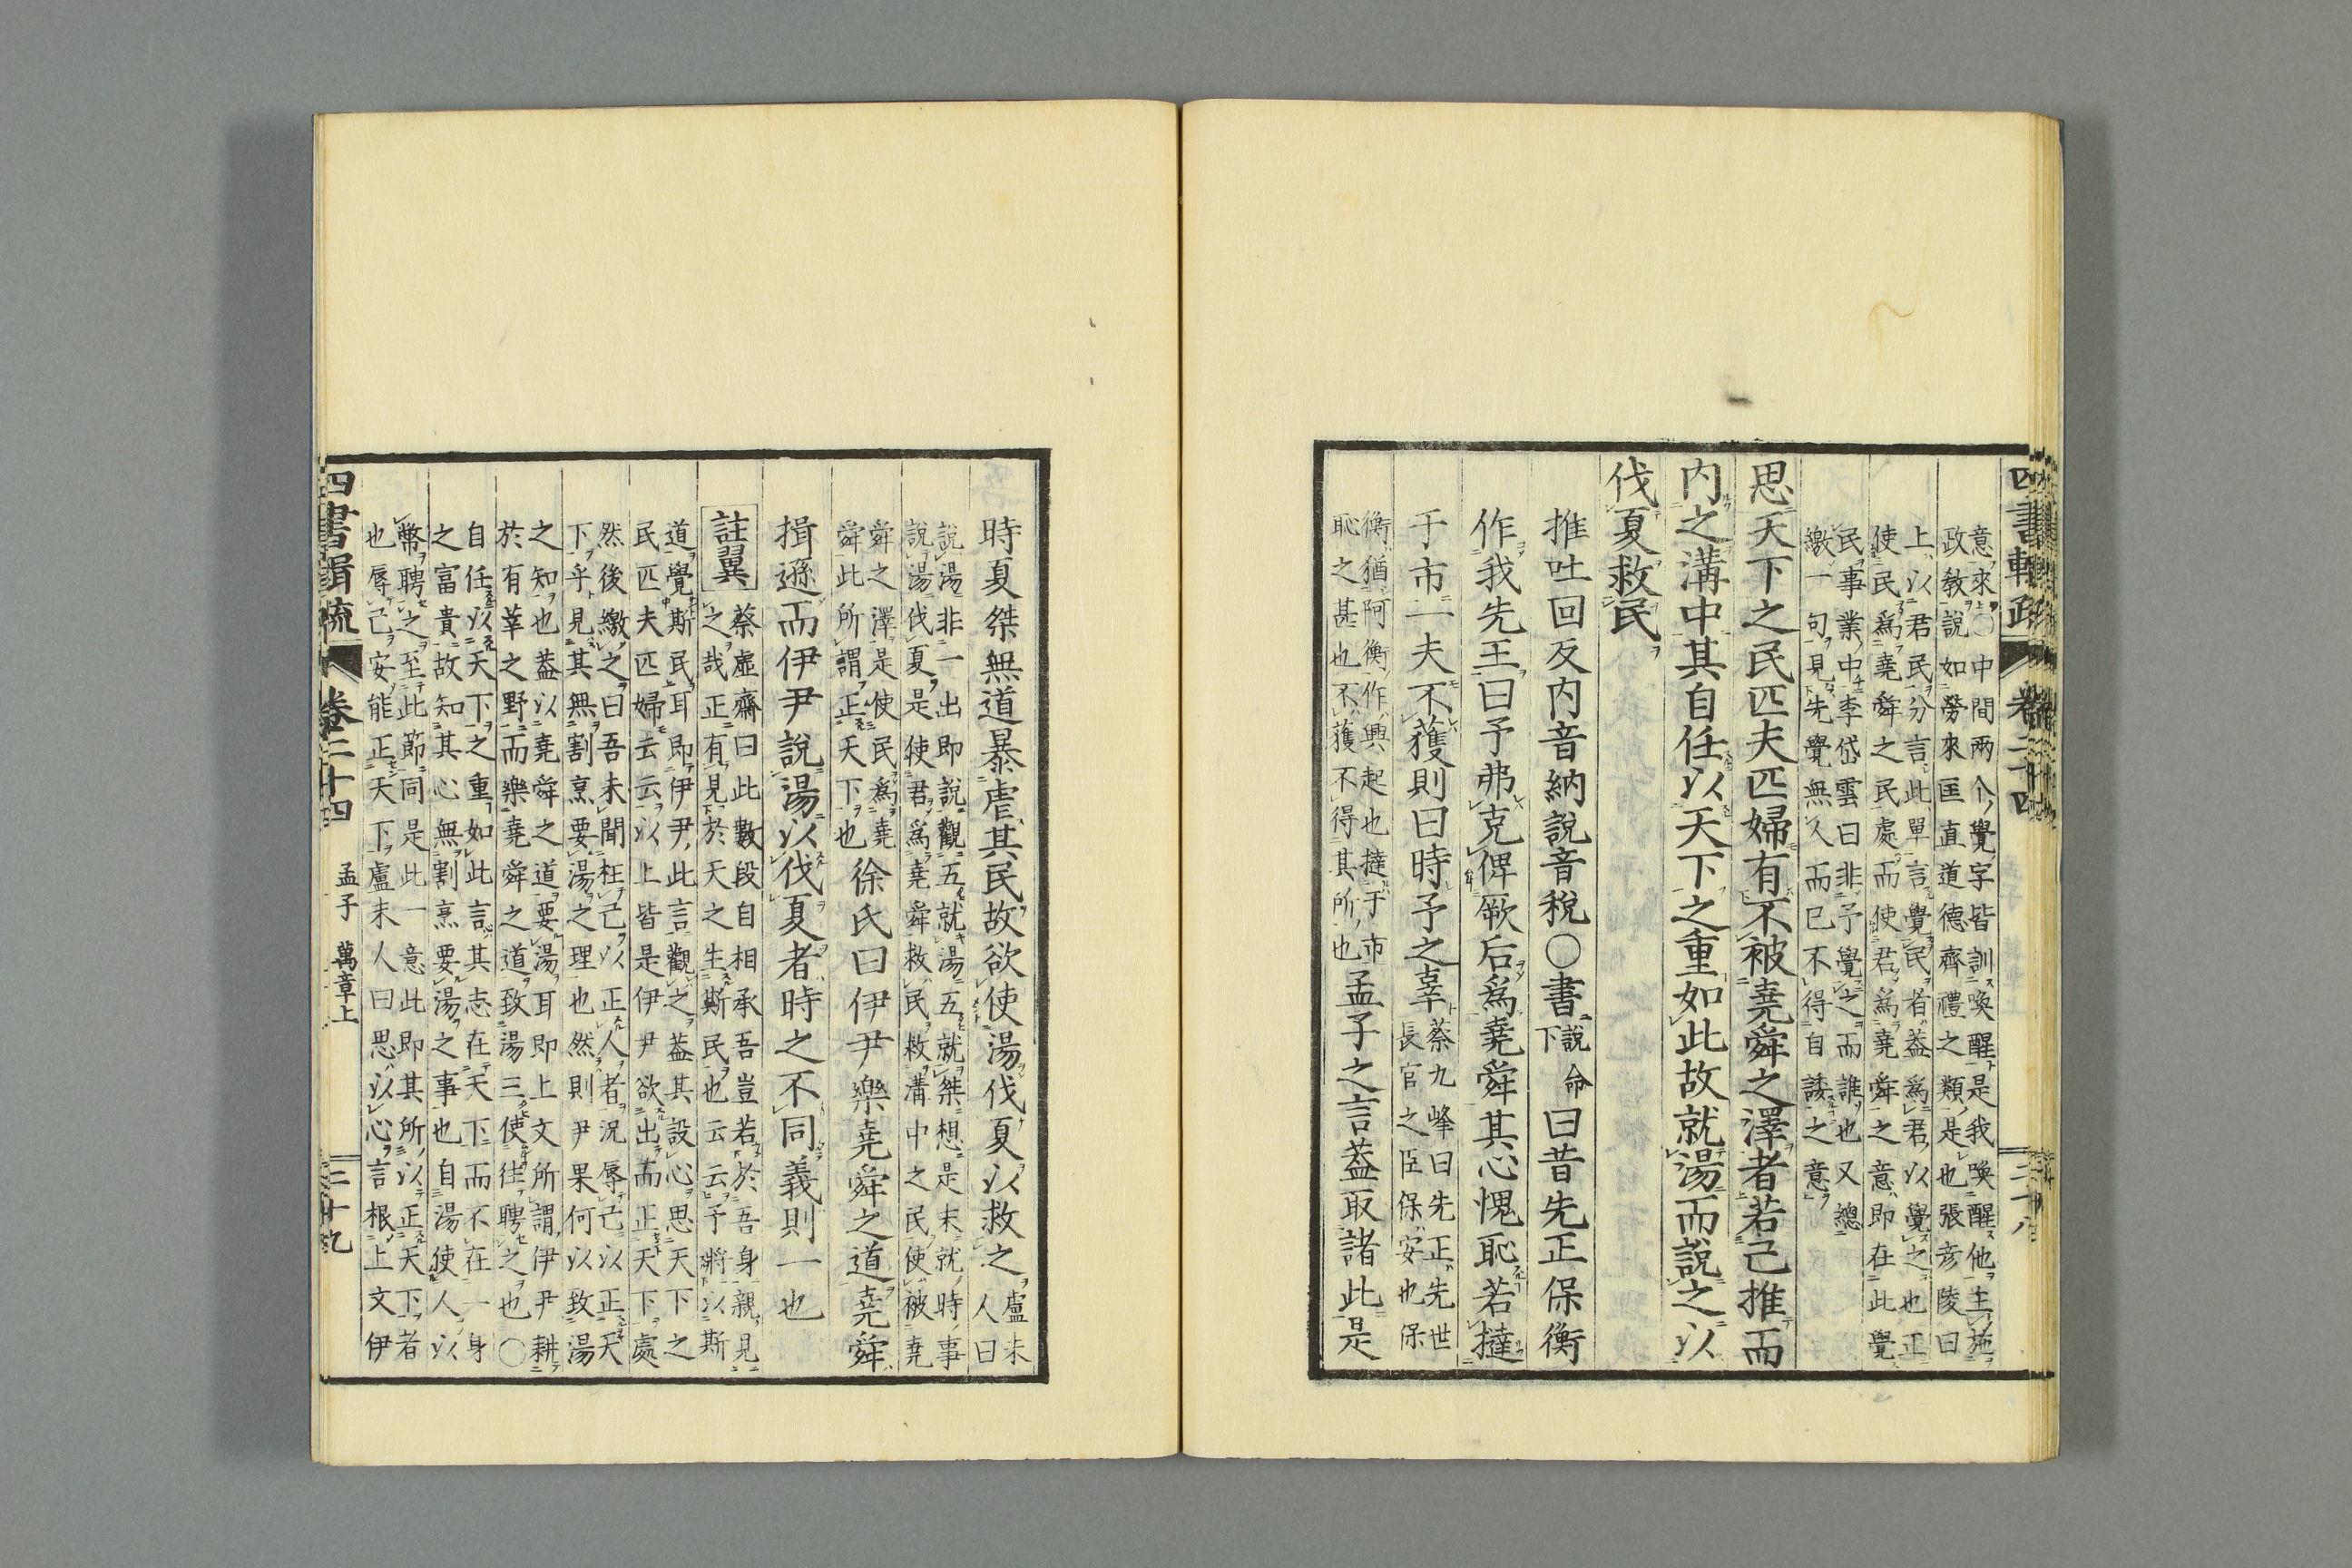 意來○中間兩个覺字皆訓喚醒是我喚醒他主施
政敎說如勞來匡直道德齊禮之類是也張彥陵曰
上以君民分言此單言覺民者葢爲君以覺之也正
使民爲堯舜之民處而使君爲堯舜之意即在此覺
民事業中李岱雲曰非予覺之而誰也又總
繳一句見先覺無人而已不得自諉之意
思天下之民匹夫匹婦有不被堯舜之澤者若己推而
內之溝中其自任以天下之重如此故就湯而說之以
伐夏救民
推吐回反内音納說音稅○書說命下曰昔先正保衡
作我先王曰予弗克俾厥后爲堯舜其心愧恥若撻
于市一夫不獲則曰時予之辜蔡九峰曰先正先世
長官之臣保安也保
衡猶阿衡作興起也撻于市
恥之甚也不獲不得其所也孟子之言葢取諸此是
時夏桀無道暴虐其民故欲使湯伐夏以救之盧未
人曰
說湯非一出即說觀五就湯五就桀想是未就時事
說湯伐夏是使君爲堯舜救民救溝中之民使被堯
舜之澤是使民爲堯
舜此所謂正天下也徐氏曰伊尹樂堯舜之道堯舜
揖遜而伊尹說湯以伐夏者時之不同義則一也
註翼蔡虛齋曰此數段自相承吾豈若於吾身親見
之哉正有見於天之生斯民也云云予將以斯
道覺斯民耳即伊尹此言觀之葢其設心思天下之
民匹夫匹婦云云以上皆是伊尹欲出而正天下處
然後繳之曰吾未聞枉己以正人者況辱己以正天
下乎見其無割烹要湯之理也然則尹果何以致湯
之知也葢以堯舜之道要湯耳即上文所謂伊尹耕
於有莘之野而樂堯舜之道致湯三使往聘之也○
自任以天下之重如此言其志在天下而不在一身
之富貴故知其心無割烹要湯之事也自湯使人以
幣聘之至此節同是此一意此即其所以正天下者
也辱己安能正天下盧未人曰思以心言根上文伊
四書輯疏
卷二十四
孟子 萬章上
二十九